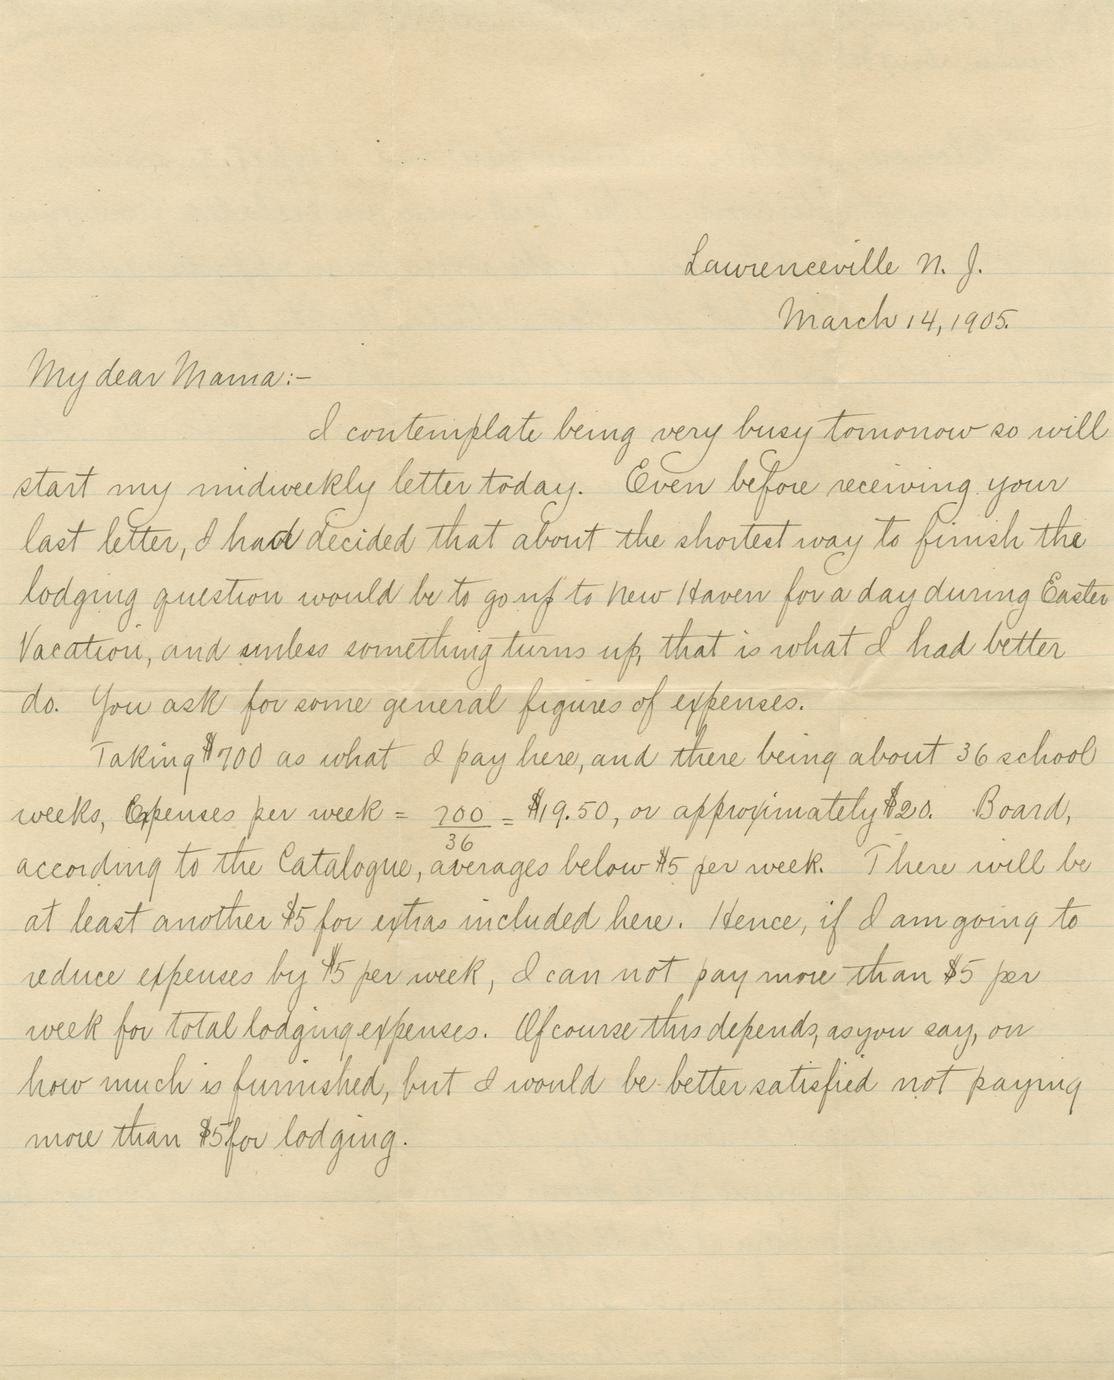 Lawrenceville N. J.
March 14, 1905.
My dear Mama:-
I contemplate being very busy tomorrow so will
start my midweekly letter today. Even before receiving your
last letter, I had decided that about the shortest way to finish the
lodging question would be to go up to New Haven for a day during Easter
Vacation, and unless something turns up, that is what I had better
do. You ask for some general figures of expenses.
Taking $700 as what I pay here, and there being about 36 school
weeks, Expenses per week = 700/36 = $19.50, or approximately $20. Board,
according to the Catalogue, averages below $5 per week. There will be
at least another $5 for extras included here. Hence, if I am going to
reduce expenses by $5 per week, I can not pay more than $5 per
week for total lodging expenses. Of course this depends, as you say, on
how much is furnished, but I would be better satisfied not paying
more than $5 for lodging.